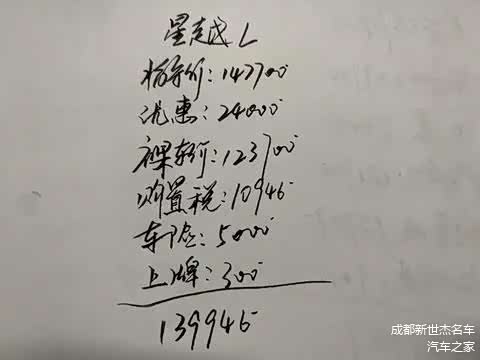 星越L
指导价：147700
优惠：24000
裸车价：123700
购置税：10946
车险：5000
上牌：300
139946
成都新世杰名车
汽车之家